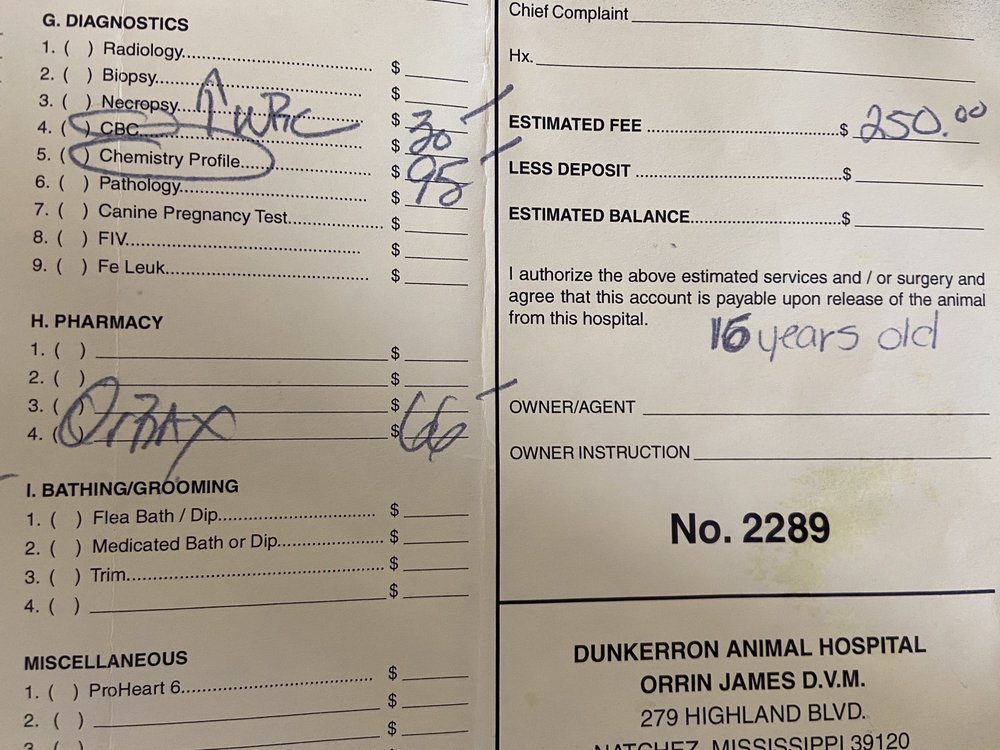 G. DIAGNOSTICS
1. ( ) Radiology.......... $
2. ( ) Biopsy.......... $
3. ( ) Necropsy.......... $
↑ WBC
4. ( ) CBC.......... $ 30
5. ( ) Chemistry Profile.......... $ 95
6. ( ) Pathology.......... $
7. ( ) Canine Pregnancy Test.......... $
8. ( ) FIV.......... $
9. ( ) Fe Leuk.......... $
H. PHARMACY
1. ( ) $
2. ( ) $
3. ( ) $
4. ( ) Orbax $ 66
I. BATHING/GROOMING
1. ( ) Flea Bath / Dip.......... $
2. ( ) Medicated Bath or Dip.......... $
3. ( ) Trim.......... $
4. ( ) $
MISCELLANEOUS
1. ( ) ProHeart 6.......... $
2. ( ) $
3. ( ) $
Chief Complaint
Hx.
ESTIMATED FEE .......... $ 250.00
LESS DEPOSIT .......... $
ESTIMATED BALANCE.......... $
I authorize the above estimated services and / or surgery and
agree that this account is payable upon release of the animal
from this hospital.
16 years old
OWNER/AGENT
OWNER INSTRUCTION
No. 2289
DUNKERRON ANIMAL HOSPITAL
ORRIN JAMES D.V.M.
279 HIGHLAND BLVD.
NATCHEZ, MISSISSIPPI 39120